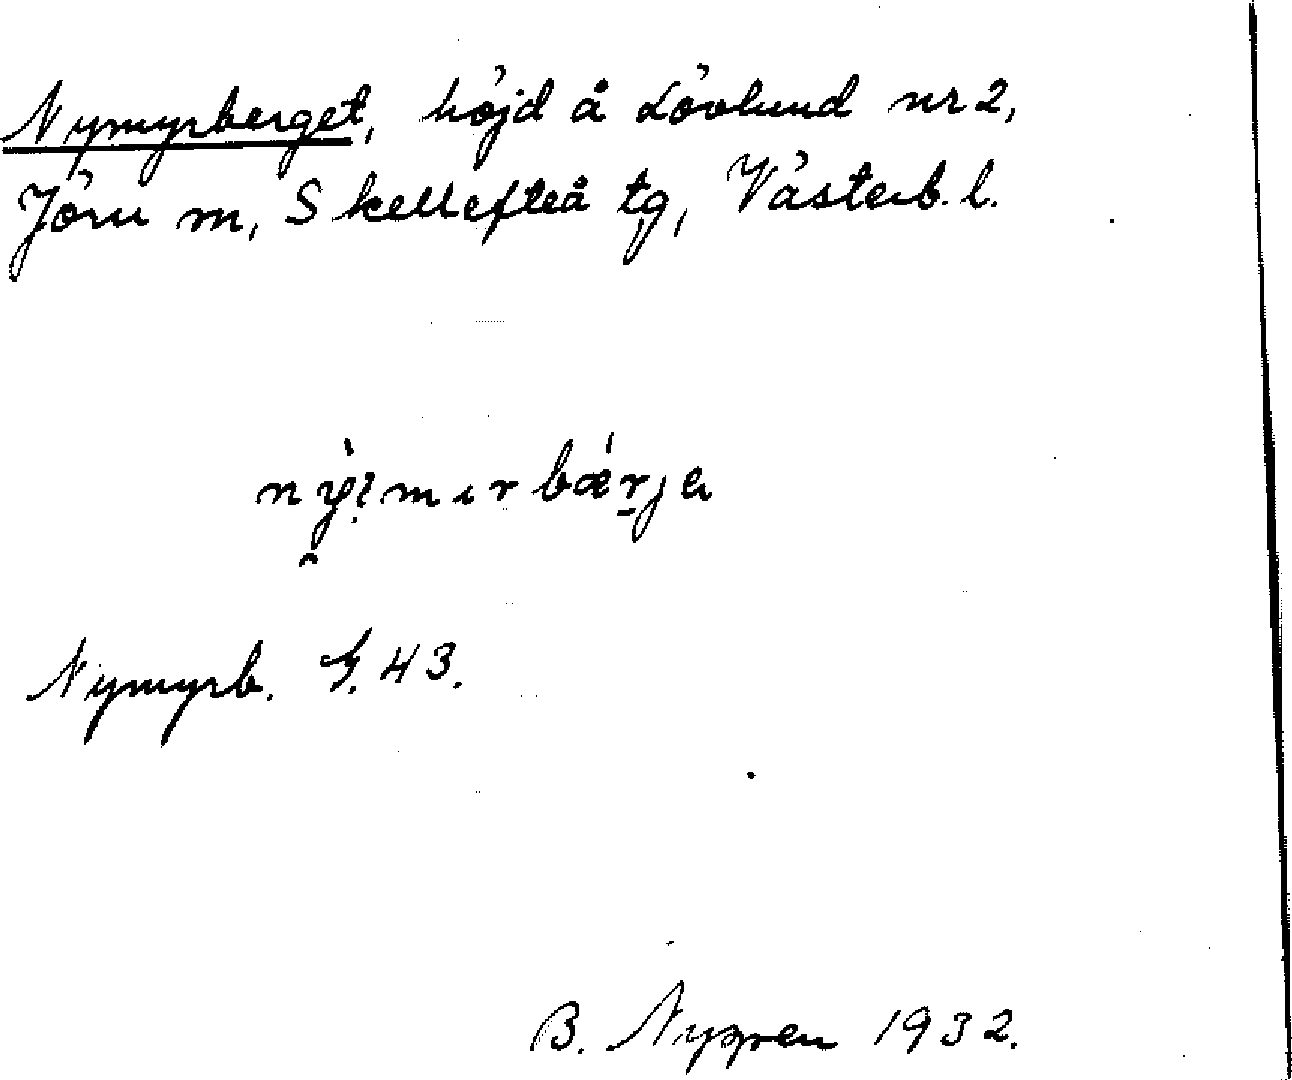 Nymyrberget, höjd å Lövlund nr 2,
Jörn m, Skellefteå tg, Västerb. l.
Nymyrb. G. 43.
B. Nygren 1932.